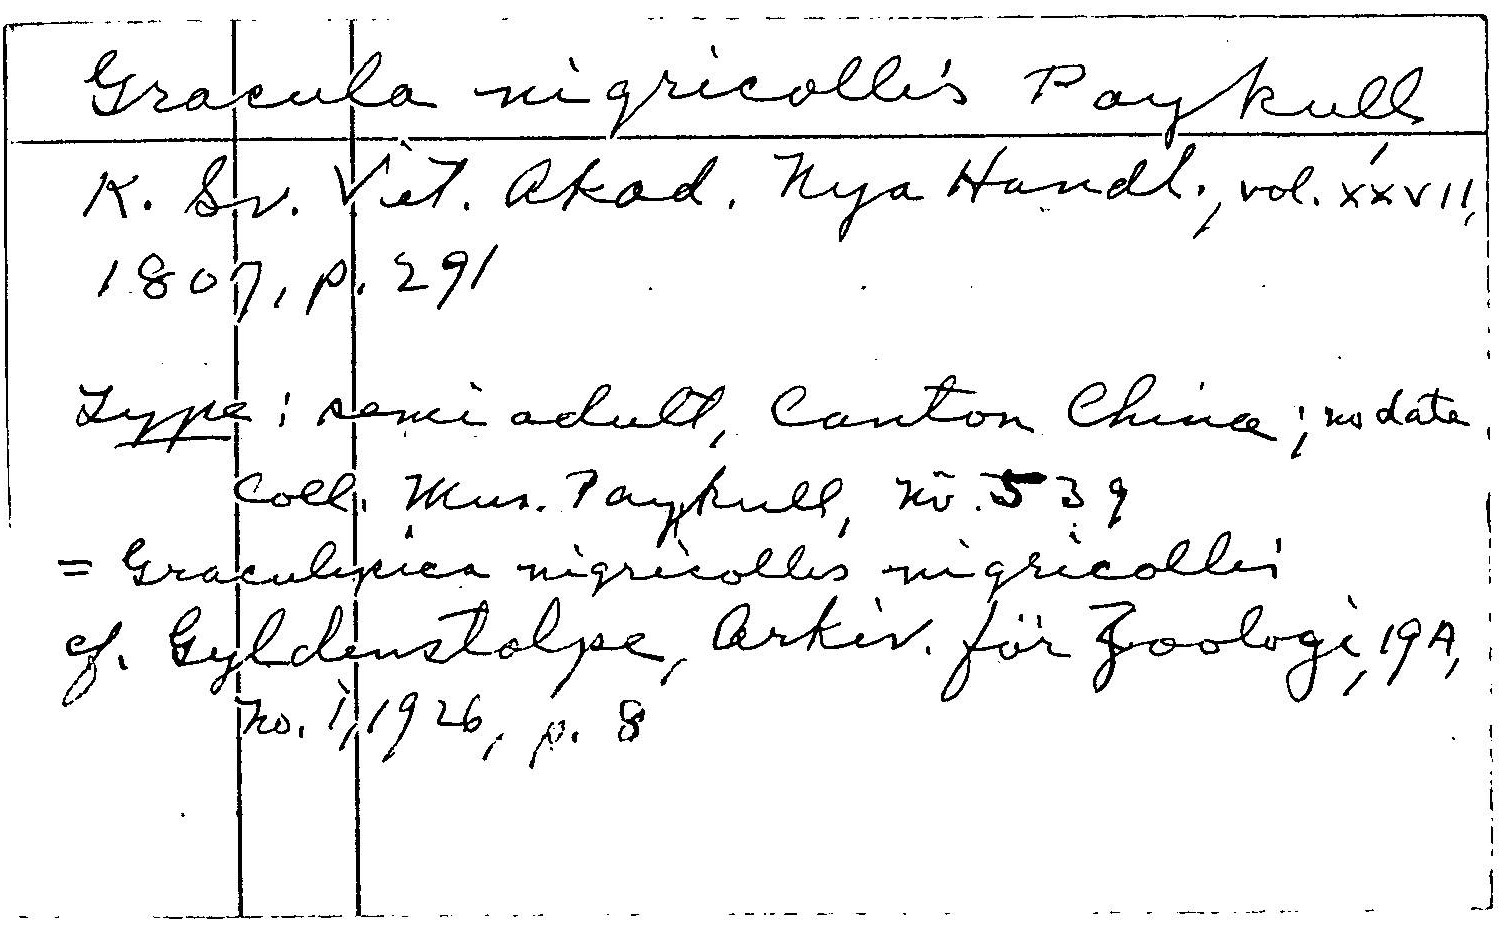 Gracula nigricollis Paykull
K. Sv. Vet. Akad. Nya Handl., vol. xxvii,
1807, p. 291
Type: semiadult, Canton China; no date
Coll. Mus. Paykull, no. 539
= Graculipica nigricollis nigricollis
cf. Gyldenstolpe, Arkiv. för Zoologi, 19A,
no. 1, 1926, p. 8